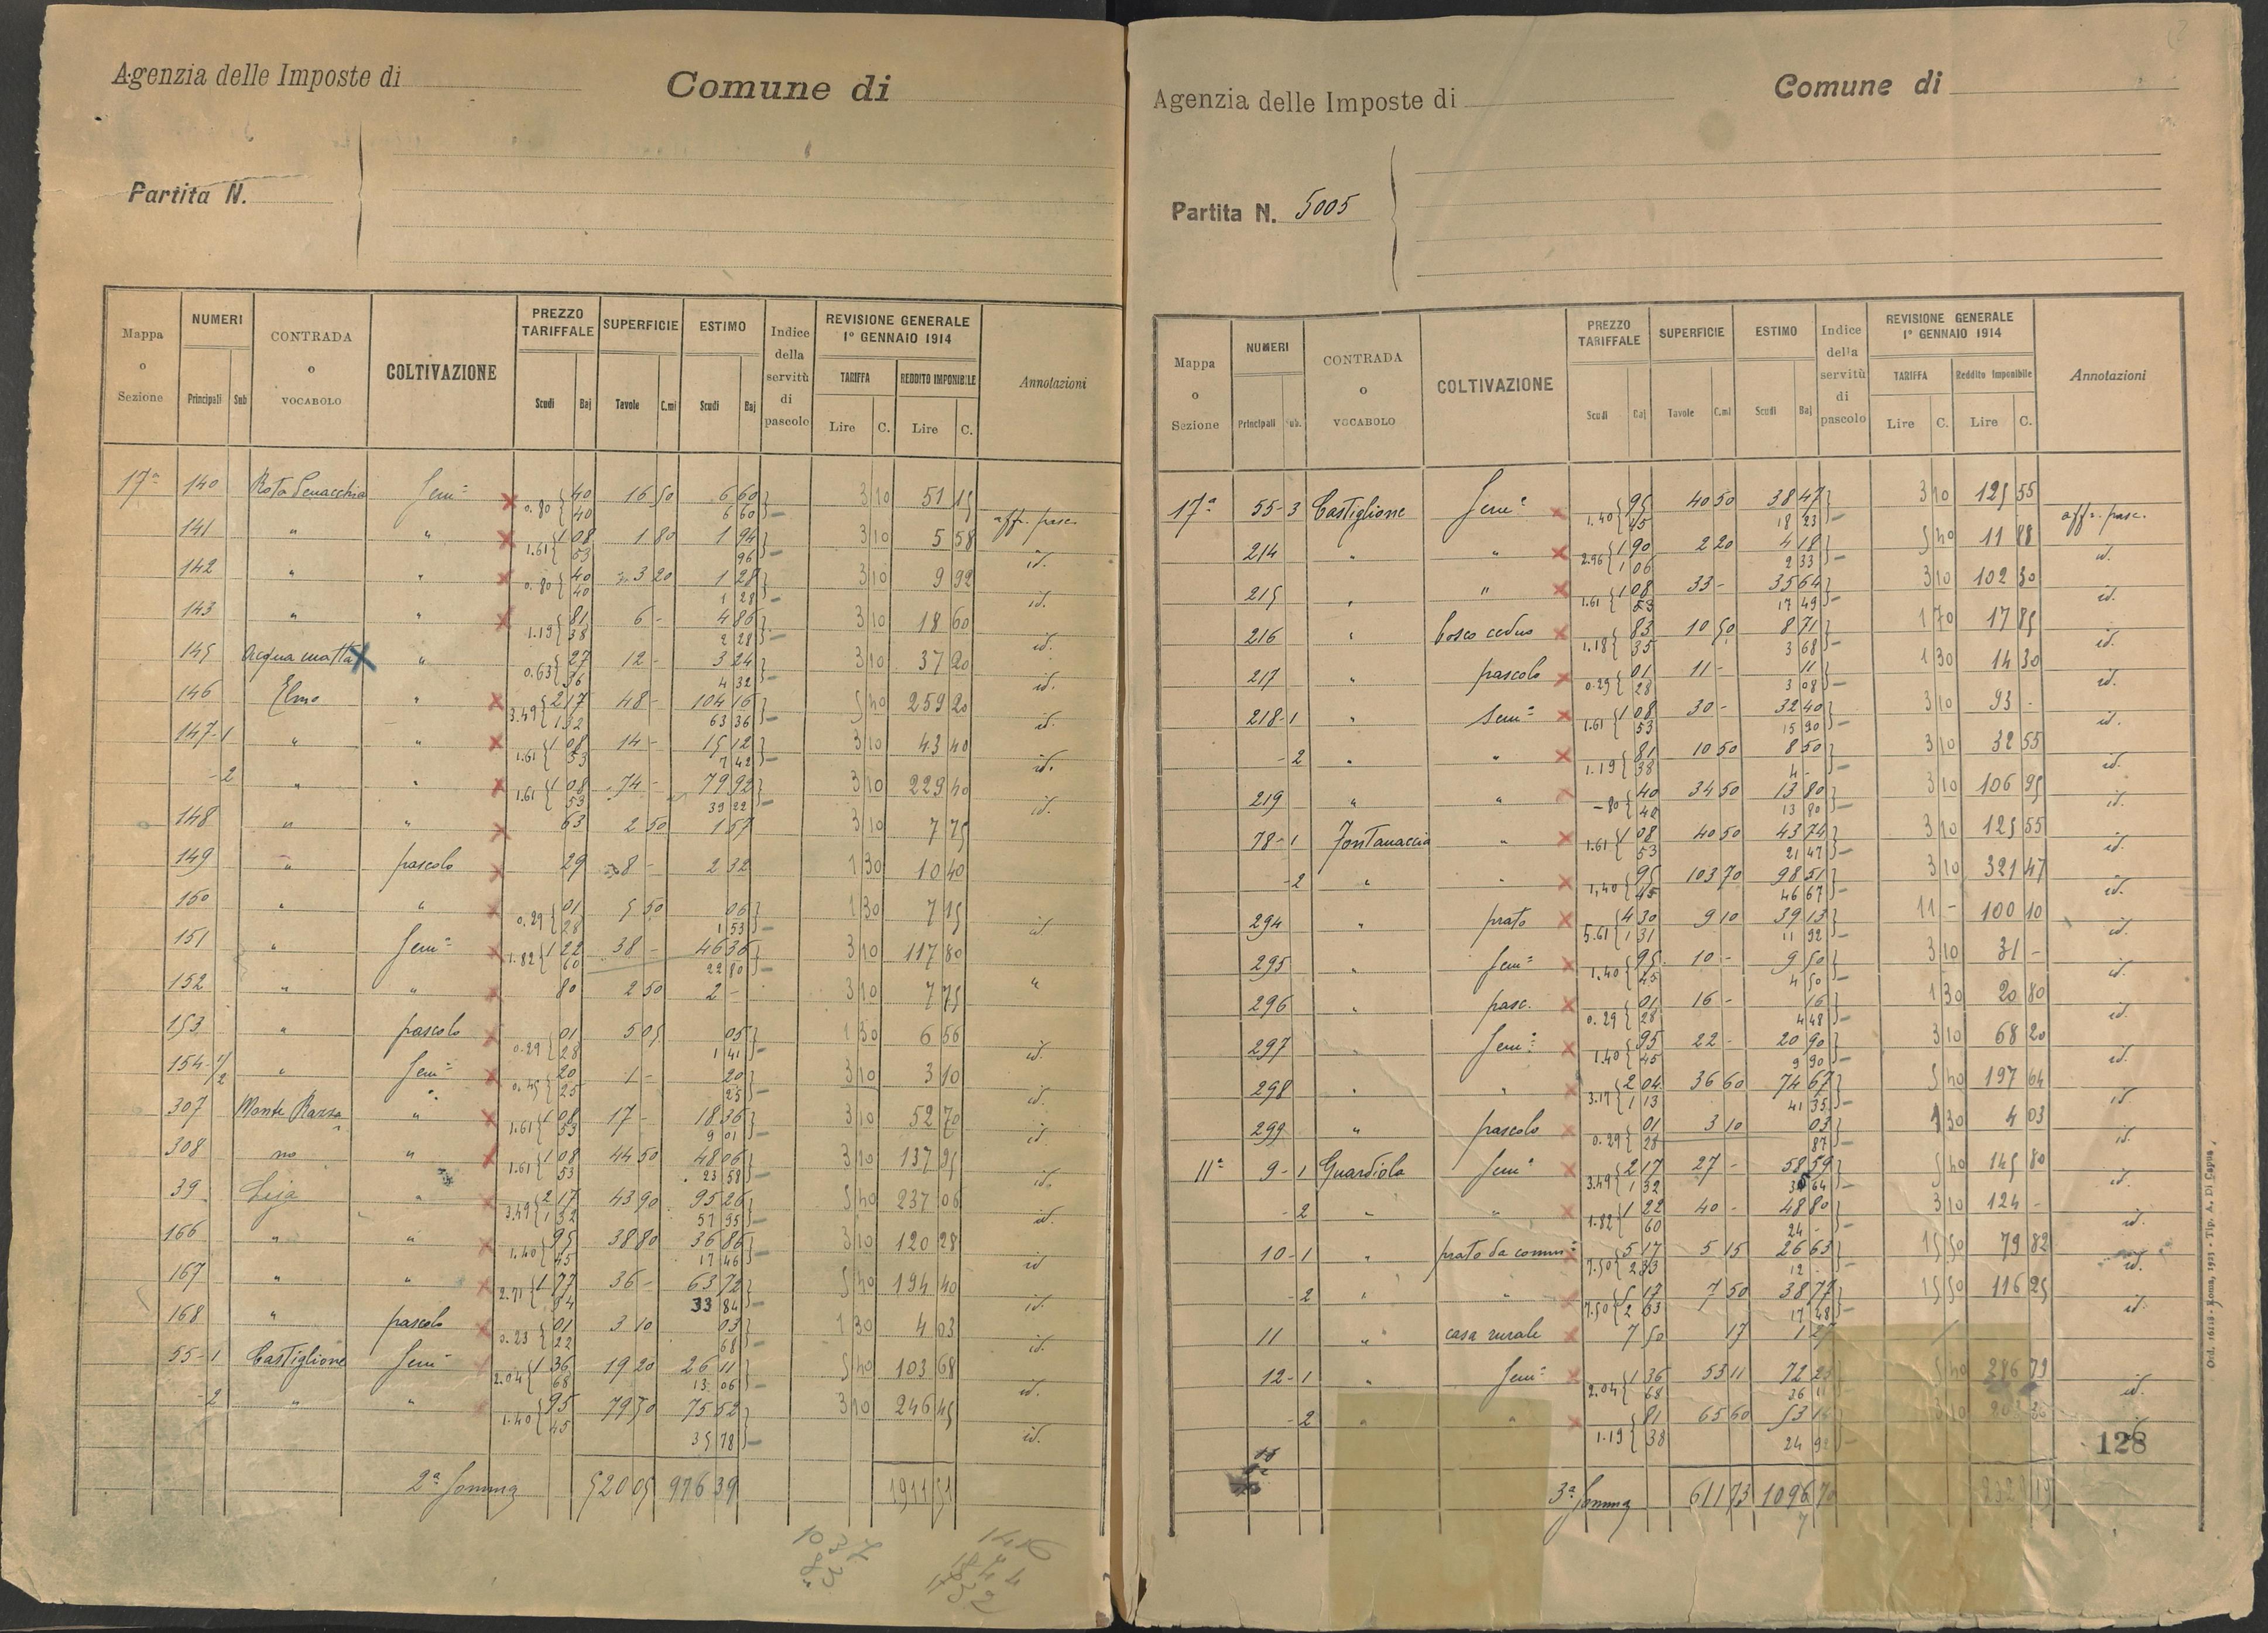 Agenzia delle Imposte di
Comune di
Partita N.
Mappa o Sezione
NUMERI
Principali Sub
CONTRADA o VOCABOLO
COLTIVAZIONE
PREZZO TARIFFALE
Scudi Baj
SUPERFICIE
Tavole C.mi
ESTIMO
Scudi Baj
Indice della servitù di pascolo
REVISIONE GENERALE 1° GENNAIO 1914
TARIFFA
Lire C.
REDDITO IMPONIBILE
Lire C.
Annotazioni
17ª 140 Sem: 0.80 { 40 16 50 6 60 } 3 10 51 15
40 6 60 aff. pasc.
141 " " 1.61 { 1 08 1 80 1 94 } 3 10 5 58
53 96 id.
142 " " 0.80 { 40 3 20 1 28 } 3 10 9 92
40 1 28 id.
143 " " 1.19 { 81 6 - 4 86 } 3 10 18 60
38 2 28 id.
145 Acqua matta " 0.63 { 27 12 - 3 24 } 3 10 37 20
36 4 32 id.
146 Elmo " 3.49 { 2 17 48 - 104 16 } 5 40 259 20
1 32 63 36 id.
147-1 " " 1.61 { 1 08 14 - 15 12 } 3 10 43 40
53 7 42 id.
-2 " " 1.61 { 1 08 74 - 79 92 } 3 10 229 40
53 39 22 id.
148 " " 63 2 50 1 57 3 10 7 75
149 " pascolo 29 8 - 2 32 1 30 10 40
" " 0.29 { 01 5 50 06 } 1 30 7 15
28 1 53 id
151 " Sem: 1.82 { 1 22 38 - 46 36 } 3 10 117 80
60 22 80
152 " " 80 2 50 2 - 3 10 7 75 "
153 " pascolo 0.29 { 01 5 05 05 } 1 30 6 56
28 1 41 id.
154-1/2 " Sem: 0.45 { 20 1 - 20 } 3 10 3 10
25 25 id.
307 " 1.61 { 1 08 17 - 18 36 } 3 10 52 70
53 9 01 id
308 no " 1.61 { 1 08 44 50 48 06 } 3 10 137 95
53 23 58 id.
39 " 3.49 { 2 17 43 90 95 26 } 5 40 237 06
1 32 57 95 id.
166 " " 1.40 { 95 38 80 36 86 } 3 10 120 28
45 17 46 id
167 " " 2.71 { 1 77 36 - 63 72 } 5 40 194 40
94 33 84 id.
168 " pascolo 0.23 { 01 3 10 03 } 1 30 4 03
22 68 id.
55-1 Castiglione Sem: 2.04 { 1 36 19 20 26 11 } 5 40 103 68
68 13 06 id.
-2 " " 1.40 { 95 79 50 75 52 } 3 10 246 45
45 35 78 id.
2ª Somma 520 05 976 39 1911 51
Agenzia delle Imposte di
Comune di
Partita N. 5005
Mappa o Sezione
NUMERI
Principali Sub.
CONTRADA o VOCABOLO
COLTIVAZIONE
PREZZO TARIFFALE
Scudi Baj
SUPERFICIE
Tavole C.mi
ESTIMO
Scudi Baj
Indice della servitù di pascolo
REVISIONE GENERALE 1° GENNAIO 1914
TARIFFA
Lire C.
Reddito imponibile
Lire C.
Annotazioni
17ª 55-3 Castiglione Sem: 1.40 { 95 40 50 38 47 } 3 10 125 55
45 18 23 aff. pasc.
214 " " 2.96 { 1 90 2 20 4 18 } 5 40 11 88
1 06 2 33 id.
215 " " 1.61 { 1 08 33 - 35 64 } 3 10 102 30
53 17 49 id.
216 " bosco ceduo 1.18 { 83 10 50 8 71 } 1 70 17 85
35 3 68 id.
217 " pascolo 0.29 { 01 11 - 11 } 1 30 14 30
28 3 08 id.
218-1 " Sem: 1.61 { 1 08 30 - 32 40 } 3 10 93 -
53 15 90 id.
-2 " " 1.19 { 81 10 50 8 50 } 3 10 32 55
38 4 - id.
219 " " - 80 { 40 34 50 13 80 } 3 10 106 95
40 13 80 id.
78-1 Fontanaccia " 1.61 { 1 08 40 50 43 74 } 3 10 125 55
53 21 47 id.
-2 " " 1.40 { 95 103 70 98 51 } 3 10 321 47
45 46 67 id.
294 " prato 5.61 { 4 30 9 10 39 13 } 11 - 100 10
1 31 11 92 id.
295 " Sem: 1.40 { 95 10 - 9 50 } 3 10 31 -
45 4 50 id.
296 " pasc. 0.29 { 01 16 - 16 } 1 30 20 80
28 4 48 id.
297 " Sem: 1.40 { 95 22 - 20 90 } 3 10 68 20
45 9 90 id.
298 " " 3.17 { 2 04 36 60 74 67 } 5 40 197 64
1 13 41 35 id
299 " pascolo 0.29 { 01 3 10 03 } 1 30 4 03
28 87 id.
11ª 9-1 Guardiola Sem: 3.49 { 2 17 27 - 58 59 } 5 40 145 80
1 32 64 id.
-2 " " 1.82 { 1 22 40 - 48 80 } 3 10 124 -
60 24 - id.
10-1 " 7.50 { 5 17 5 15 26 63 } 15 50 79 82
2 33 12 id.
-2 " " 7.50 { 5 17 7 50 38 77 } 15 50 116 25
2 33 17 48 id
11 " casa rurale 7 50 17 1 27
12-1 " Sem: 2.04 { 1 36 53 11 72 23 5 40 286 79
68 36 11 id.
-2 " " 1.19 { 81 65 60 53 14 3 10
38 24 92
128
3ª Somma 611 73 1096 70
Ord. 16118 - Roma, 1923 - Tip. A. Di Capua